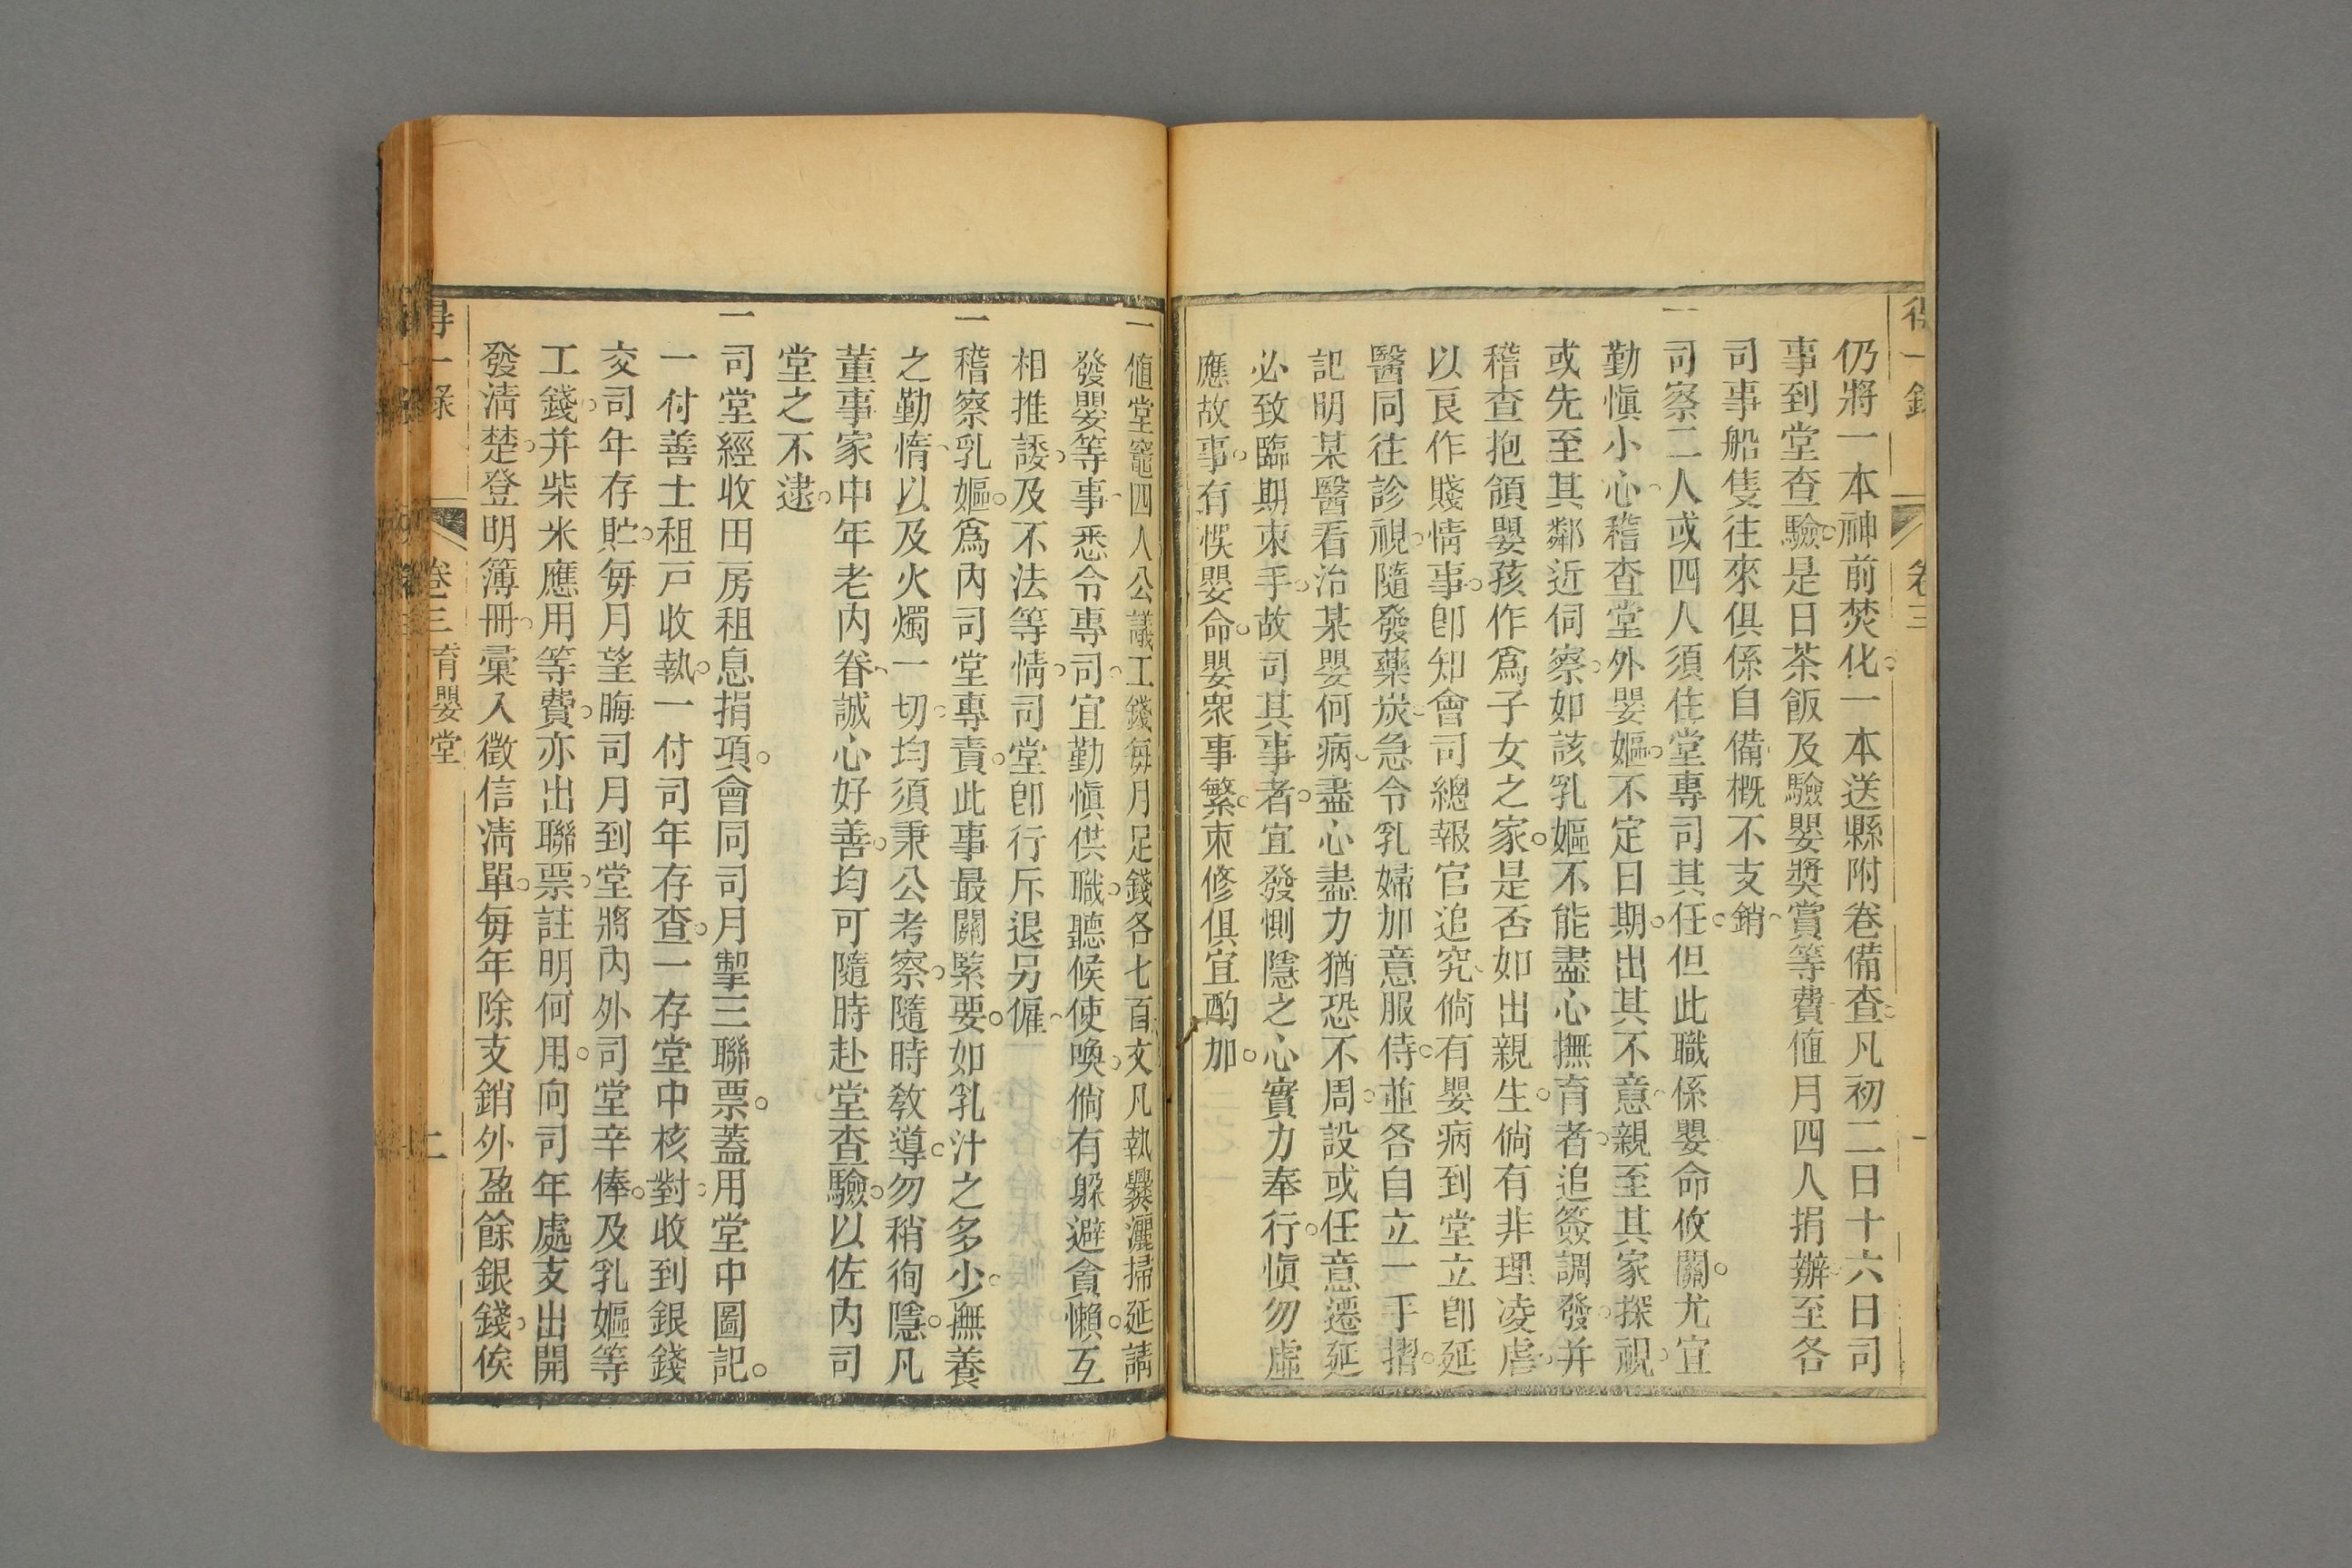 得一錄 卷三 一
仍將一本神前焚化。一本送縣附卷備查。凡初二日十六日司
事到堂查驗。是日茶飯及驗嬰獎賞等費。値月四人捐辦。至各
司事船隻往來俱係自備。概不支銷。
一司察二人或四人須住堂專司其任。但此職係嬰命攸關。尤宜
勤愼小心。稽查堂外嬰嫗。不定日期。出其不意。親至其家探視。
或先至其鄰近伺察。如該乳嫗不能盡心撫育者。追簽調發。并
稽查抱領嬰孩作爲子女之家。是否如出親生。倘有非理凌虐。
以良作賤情事。卽知會司總報官追究。倘有嬰病到堂立卽延
醫同往診視。隨發藥炭。急令乳婦加意服侍。並各自立一手摺。
記明某醫看治某嬰何病。盡心盡力猶恐不周。設或任意遷延
必致臨期束手。故司其事者。宜發惻隱之心實力奉行。愼勿虛
應故事。有悞嬰命。嬰衆事繁。束修俱宜酌加。
一値堂竈四人公議工錢每月足錢各七百文凡執爨灑掃延請
發嬰等事。悉令專司。宜勤愼供職。聽候使喚。倘有躲避貪懶。互
相推諉。及不法等情。司堂卽行斥退另僱。
一稽察乳嫗。爲內司堂專責。此事最關緊要。如乳汁之多少。撫養
之勤惰。以及火燭一切。均須秉公考察。隨時敎導。勿稍徇隱。凡
董事家中年老內眷。誠心好善。均可隨時赴堂查驗。以佐內司
堂之不逮。
一司堂經收田房租息捐項。會同司月掣三聯票。蓋用堂中圖記。
一付善士租戶收執。一付司年存查。一存堂中核對。收到銀錢
交司年存貯。每月望晦司月到堂將內外司堂辛俸。及乳嫗等
工錢。并柴米應用等費。亦出聯票。註明何用。向司年處支出開
發淸楚。登明簿冊。彙入徵信淸單。每年除支銷外盈餘銀錢。俟
得一錄 卷三 育嬰堂 二